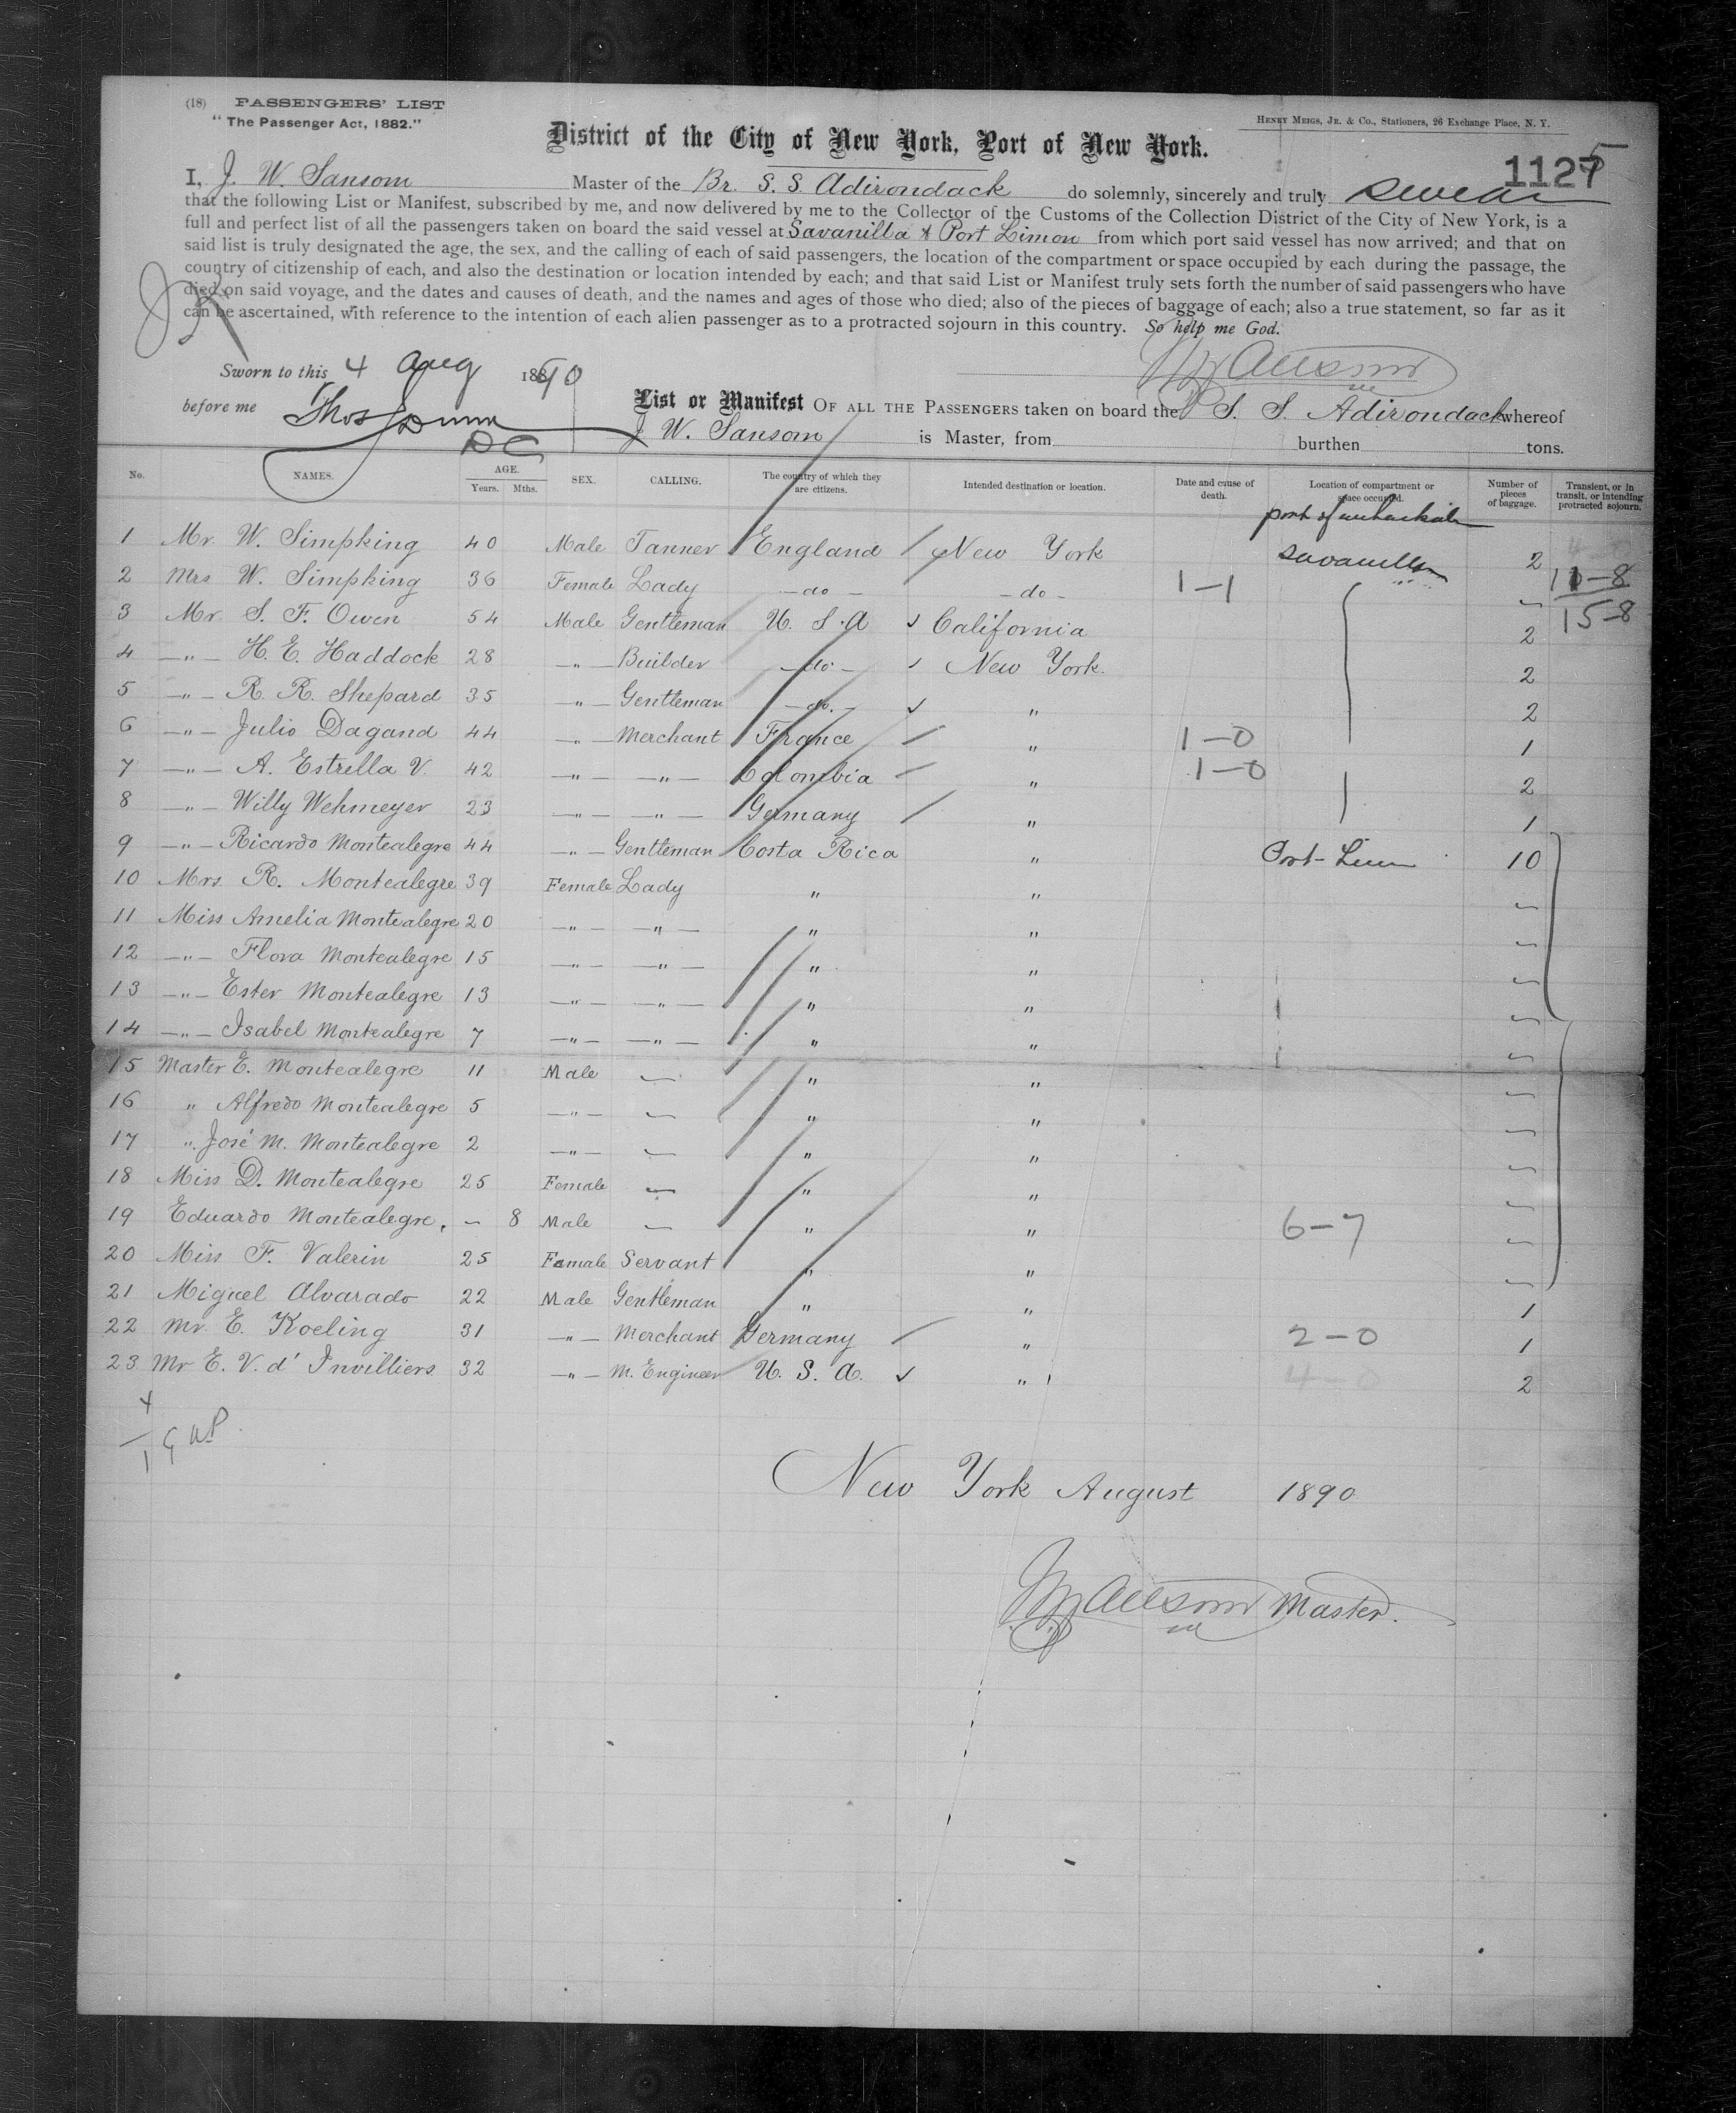 (18) PASSENGERS' LIST
"The Passenger Act, 1882."
HENRY MEIGS, JR. & CO., Stationers, 26 Exchange Place, N. Y.
District of the City of New York, Port of New York.
1127
I, J. W. Sansom Master of the Br. S. S. Adirondack do solemnly, sincerely and truly swear
that the following List or Manifest, subscribed by me, and now delivered by me to the Collector of the Customs of the Collection District of the City of New York, is a
full and perfect list of all the passengers taken on board the said vessel at Savanilla & Port Limon from which port said vessel has now arrived; and that on
said list is truly designated the age, the sex, and the calling of each of said passengers, the location of the compartment or space occupied by each during the passage, the
country of citizenship of each, and also the destination or location intended by each; and that said List or Manifest truly sets forth the number of said passengers who have
died on said voyage, and the dates and causes of death, and the names and ages of those who died; also of the pieces of baggage of each; also a true statement, so far as it
can be ascertained, with reference to the intention of each alien passenger as to a protracted sojourn in this country. So help me God.
Sworn to this 4 Aug 1890
JW Sansom
before me Thos Dunn
DC
List or Manifest OF ALL THE PASSENGERS taken on board the S. S. Adirondack whereof
J W. Sansom is Master, from burthen tons.
No. NAMES. AGE. Years. Mths. SEX. CALLING. The country of which they are citizens. Intended destination or location. Date and cause of death. Location of compartment or space occupied. Number of pieces of baggage. Transient, or in transit, or intending protracted sojourn.
port of embarkation
1 Mr. W. Simpking 40 Male Tanner England New York Savanilla 2
2 Mrs W. Simpking 36 Female Lady — do — — do — 1—1 11—8
3 Mr. S. F. Owen 54 Male Gentleman U. S. A ✓ California 2 15—8
4 — " — H. E. Haddock 28 — " — Builder — do — ✓ New York. 2
5 — " — R. R. Shepard 35 — " — Gentleman — do. — ✓ " 2
6 — " — Julio Dagand 44 — " — Merchant France " 1—0 1
7 — " — A. Estrella V. 42 — " — — " — Colombia " 1—0 2
8 — " — Willy Wehmeyer 23 — " — — " — Germany " 1
9 — " — Ricardo Montealegre 44 — " — Gentleman Costa Rica " Port-Limon 10
10 Mrs. R. Montealegre 39 Female Lady " " —
11 Miss Amelia Montealegre 20 — " — — " — " " —
12 — " — Flora Montealegre 15 — " — — " — " " —
13 — " — Ester Montealegre 13 — " — — " — " " —
14 — " — Isabel Montealegre 7 — " — — " — " " —
15 Master E. Montealegre 11 Male — " " —
16 " Alfredo Montealegre 5 — " — — " " —
17 " José M. Montealegre 2 — " — — " " —
18 Miss D. Montealegre 25 Female — " " —
19 Eduardo Montealegre, — 8 Male — " " 6—7 —
20 Miss F. Valerin 25 Female Servant " " —
21 Miguel Alvarado 22 Male Gentleman " " 1
22 Mr. E. Koeling 31 — " — Merchant Germany " 2—0 1
23 Mr E. V. d' Invilliers 32 — " — M. Engineer U. S. A. ✓ " 4 0 2
New York August 1890
JW Sansom Master.